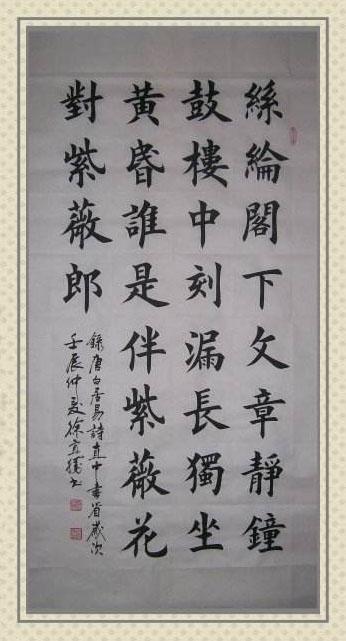 絲綸閣下文章靜鐘
鼓樓中刻漏長獨坐
黃昏誰是伴紫薇花
對紫薇郎
錄唐白居易詩直中書省歲次
壬辰仲夏徐